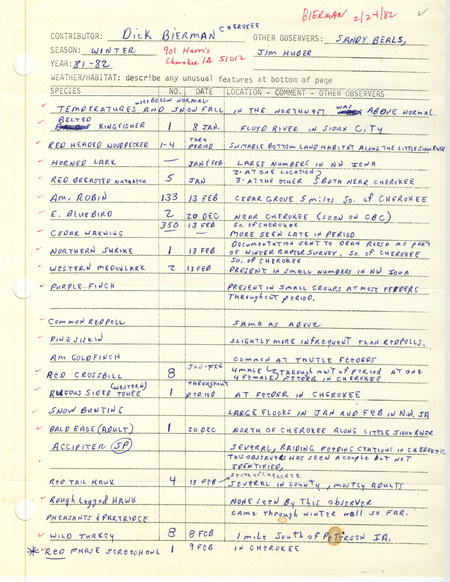 BIERMAN 2/24/82
CONTRIBUTOR: Dick BIERMAN CHEROKEE OTHER OBSERVERS: SANDY BEALS,
SEASON: WINTER 901 Harris JIM HUBER
YEAR: 81-82 Cherokee IA 51012
WEATHER/HABITAT: describe any unusual features at bottom of page
SPECIES NO. DATE LOCATION - COMMENT - OTHER OBSERVERS
TEMPERATURES WERE BELOW NORMAL AND SNOW FALL IN THE NORTHWEST WAS ABOVE NORMAL.
BELTED
KINGFISHER 1 8 JAN. FLOYD RIVER IN SIOUX CITY
RED HEADED WOODPECKER 1-4 THRU PERIOD SUITABLE BOTTOM LAND HABITAT ALONG THE LITTLE SIOUX RIVER
HORNED LARK — JAN & FEB LARGE NUMBERS IN NW IOWA
RED BREASTED NUTHATCH 5 JAN 2-AT ONE LOCATION 3-AT THE OTHER BOTH NEAR CHEROKEE
AM. ROBIN 133 13 FEB CEDAR GROVE 5 miles So. of CHEROKEE
E. BLUEBIRD 2 20 DEC NEAR CHEROKEE (SEEN ON CBC)
350 13 FEB So. OF CHEROKEE
CEDAR WAXWING — MORE SEEN LATE IN PERIOD
NORTHERN SHRIKE 1 13 FEB DOCUMENTATION SENT TO DEAN ROOSA AS PART
OF WINTER RAPTOR SURVEY, So. OF CHEROKEE
So. OF CHEROKEE
WESTERN MEDOWLARK 2 13 FEB PRESENT IN SMALL NUMBERS IN NW IOWA
PURPLE FINCH PRESENT IN SMALL GROUPS AT MOST FEEDERS
THROUGHOUT PERIOD.
COMMON REDPOLL SAME AS ABOVE
PINE SISKIN SLIGHTLY MORE INFREQUENT THAN REDPOLLS.
AM GOLDFINCH COMMON AT THISTLE FEEDERS
RED CROSSBILL 8 JAN-FEB 4 MALE, 4 FEMALE THROUGHOUT PERIOD AT ONE
FEEDER IN CHEROKEE
RUFOUS SIDED TOHEE (WESTERN) 1 THROUGHOUT PERIOD AT FEEDER IN CHEROKEE
SNOW BUNTING LARGE FLOCKS IN JAN AND FEB IN N.W. IA
BALD EAGLE (ADULT) 1 20 DEC NORTH OF CHEROKEE ALONG LITTLE SIOUX RIVER
ACCIPITER (SP) SEVERAL, RAIDING FEEDING STATIONS IN CHEROKEE
THIS OBSERVER HAS SEEN A COUPLE BUT NOT
IDENTIFIED,
SOUTH OF CHEROKEE
RED TAIL HAWK 4 13 FEB SEVERAL IN COUNTY, MOSTLY ADULTS
Rough Legged HAWK NONE SEEN BY THIS OBSERVER
PHEASANTS & PARTRIDGE CAME THROUGH WINTER WELL SO FAR.
WILD TURKEY 8 8 FEB 1 mile South of PETERSON IA.
* RED PHASE SCREECHOWL 1 9 FEB IN CHEROKEE